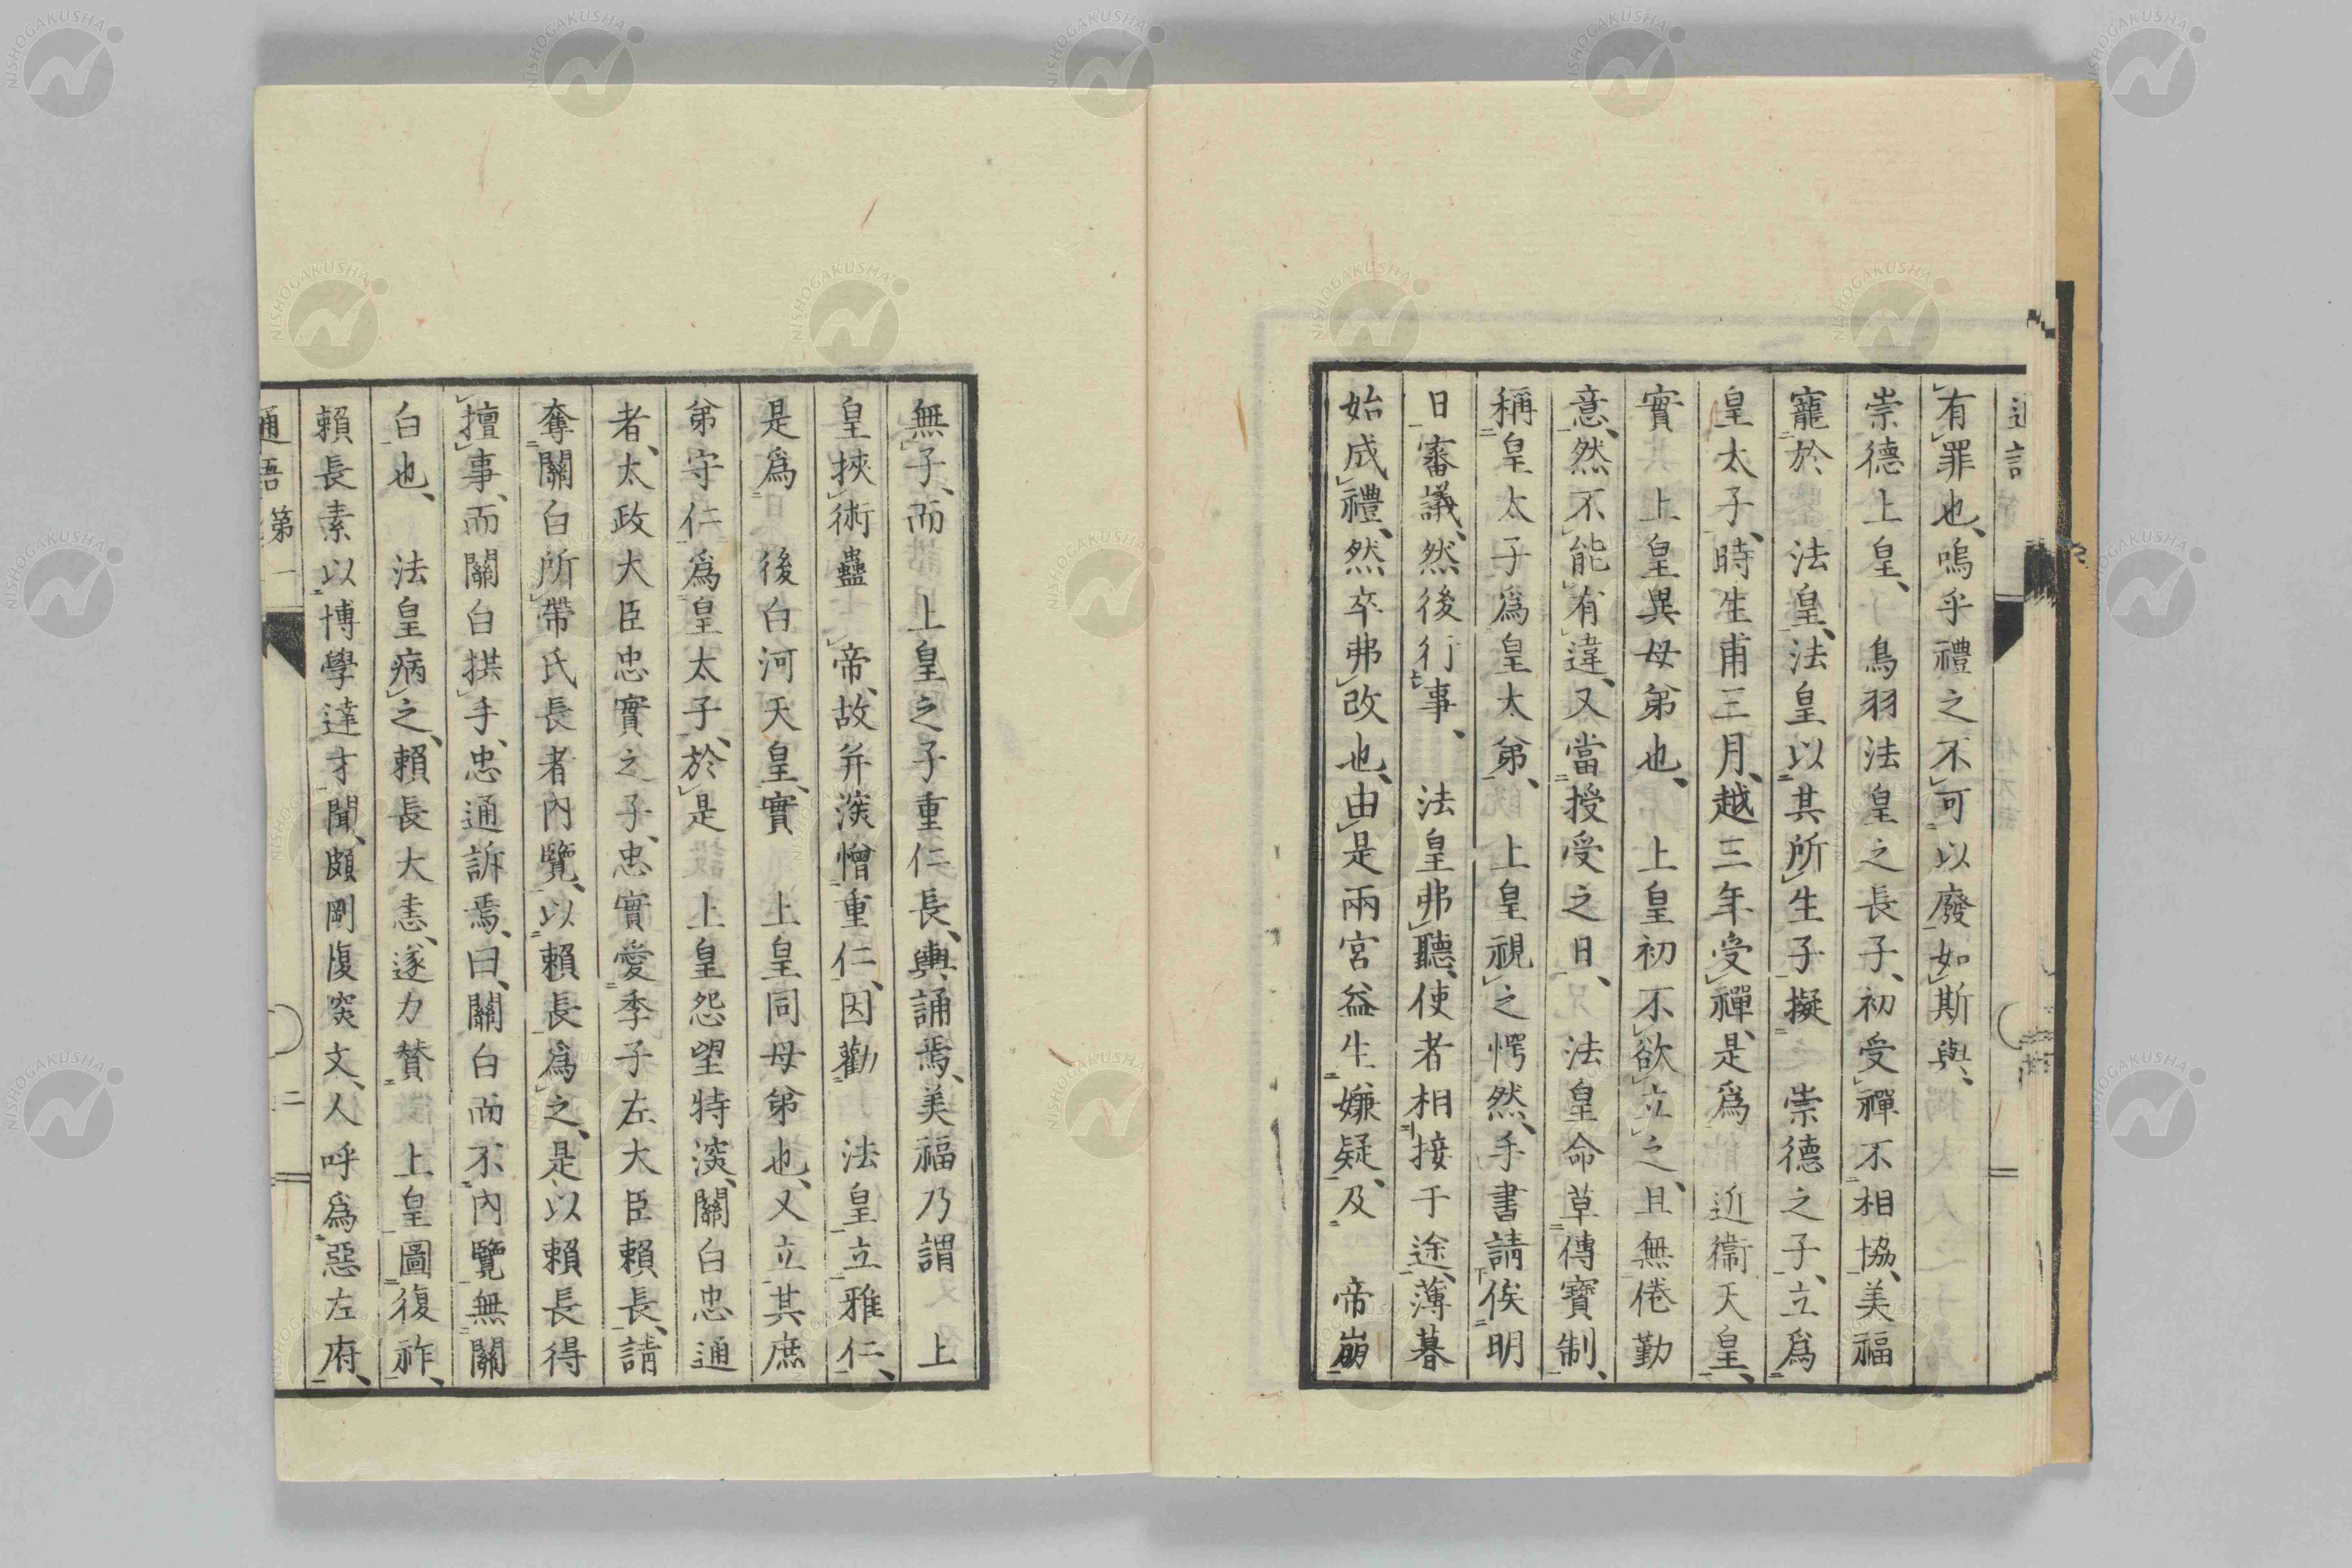 有罪也、嗚乎禮之不可以廢如斯與、
崇德上皇、鳥羽法皇之長子、初受禪不相協、美福
寵於　法皇、法皇以其所生子擬　崇德之子、立爲
皇太子、時生甫三月、越三年受禪、是爲　近衞天皇、
實　上皇異母弟也、　上皇初不欲立之、且無倦勤
意、然不能有違、又當授受之日、　法皇命草傳寶制、
稱皇太子爲皇太弟、　上皇視之愕然、手書請俟明
日審議、然後行事、　法皇弗聽、使者相接于途、薄暮
始成禮、然卒弗改也、由是兩宮益生嫌疑、及　帝崩
無子、而　上皇之子重仁長、輿誦焉、美福乃謂　上
皇挾術蠱　帝、故并深憎重仁、因勸　法皇立雅仁、
是爲　後白河天皇、實　上皇同母弟也、又立其庶
弟守仁爲皇太子、於是　上皇怨望特深、關白忠通
者、太政大臣忠實之子、忠實愛季子左大臣賴長、請
奪關白所帶氏長者內覽、以賴長爲之、是以賴長得
擅事、而關白拱手、忠通訴焉、曰、關白而不內覽無關
白也、　法皇病之、賴長大恚、遂力贊　上皇圖復祚、
賴長素以博學達才聞、頗剛愎突文、人呼爲惡左府、
通語第一
二
NISHOGAKUSHA